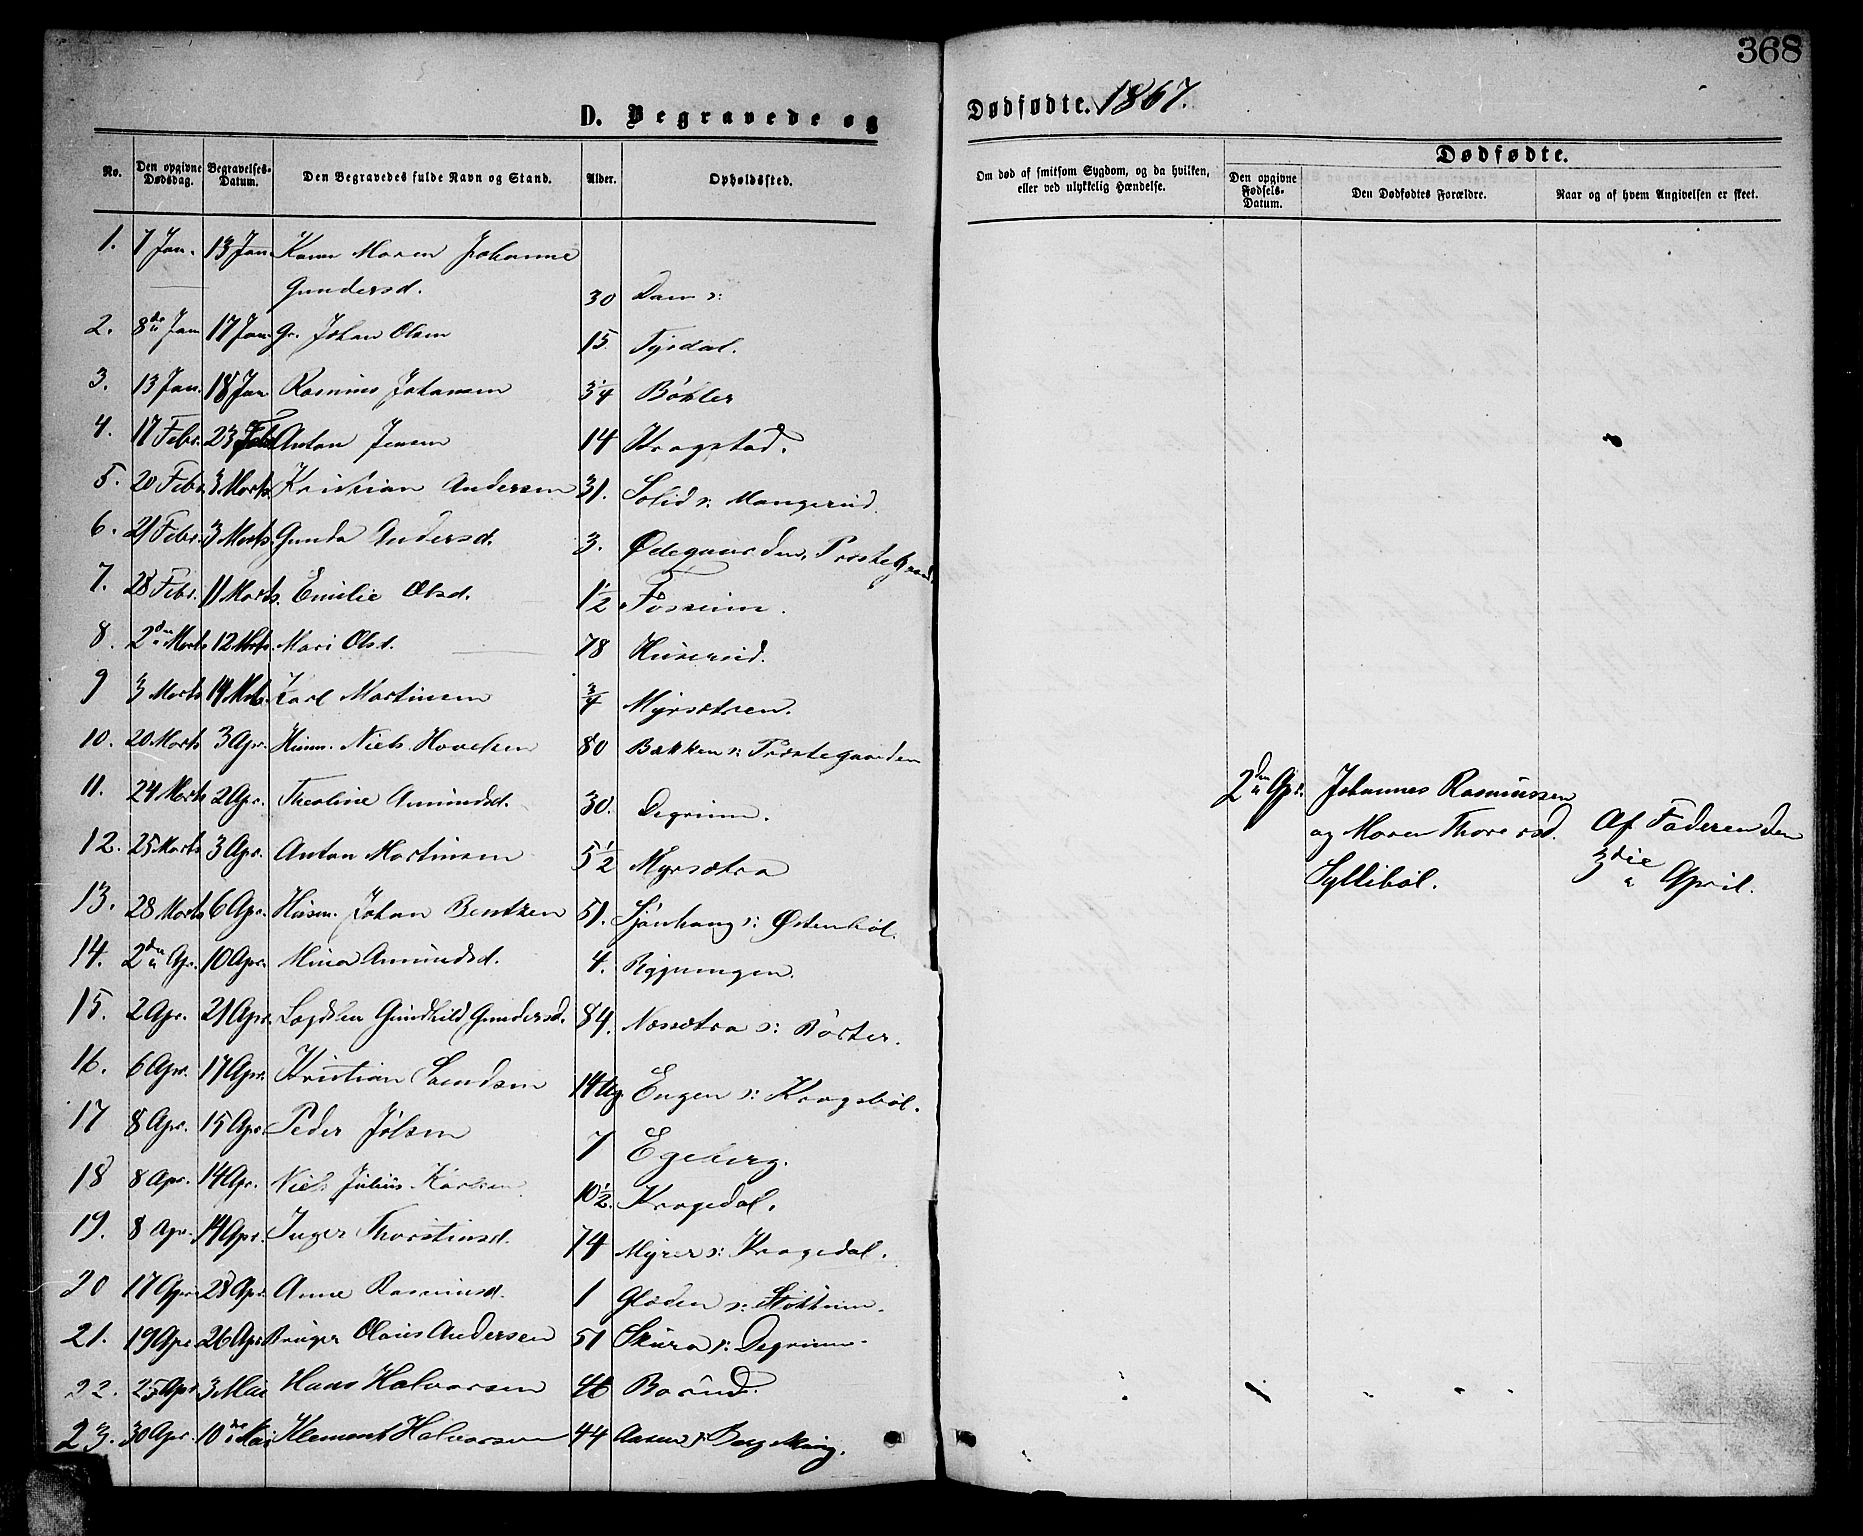 368
D. Begravede og Dødfødte. 1867.
No. Den opgivne Dødsdag. Begravelses-Datum. Den Begravedes fulde Navn og Stand. Alder. Opholdssted. Om død af smitsom Sygdom, og da hvilken, eller ved ulykkelig Hændelse.
Dødfødte.
Den opgivne Fødsels-Datum. Den Dødfødtes Forældre. Naar og af hvem Angivelsen er skeet.
1. 7 Jan. 13 Jan. Karen Maren Johanne
Gundersd. 30 Dam s:
2. 8de Jan 17 Jan. Johan Olsen 15 Tysdal.
3. 13 Jan. 18 Jan Rasmus Johansen 3 1/4 Böhler
4. 17 Febr. 23 Feb Anton Jensen 14 Kragstad.
5. 20 Febr. 3 Marts. Kristian Andersen 31. Solid s: Mangerud.
6. 21 Febr. 3 Marts. Gunda Andersd. 3. Ødegaarden, Præstegaard.
7. 28 Febr. 11 Marts. Emilie Olsd. 1 1/2 Fosseim.
8. 2den Marts 12 Mrts. Mari Olsd. 78 Huserud.
9 3 Marts 14 Mrts. Karl Martinsen 3/4 Myrsætren.
10. 20 Marts 3 Apr. Husm. Niels Hovelsen 80 Bakken s: Præstegaarden
11. 24 Marts 2 Apr. Theoline Amundsd. 30. Degrum.
12. 25 Marts 3 Apr. Anton Martinsen 5 1/2 Myrsætra
13. 28 Marts 6 Apr. Husm. Johan Bentzen 51. Østenböl.
14. 2den Apr. 10 Apr. Mina Amundsd. 4. Bygningen.
15. 2 Apr. 21 Apr. Lægdslem Gundhild Gundersd. 84. Næssætra s: Börter.
16. 6 Apr. 17 Apr. Kristian 14 Dg. Engen s: Kragsböl.
17 8 Apr. 15 Apr. Peder Jölsen 7 Egeberg.
18 8 Apr. 14 Apr. Niels Julius Karlsen 10 1/2. Kragedal.
19. 8 Apr. 14 Apr. Inger Thorstinsd. 74 Myrer s: Kragedal.
20 17 Apr. 28 Apr. Anne Rasmusd. 1 Glæden s:
21. 19 Apr 26 Apr. Bruger Olaus Andersen 51 Skura s: Degrum.
22. 25 Apr 3 Mai Hans Halvorsen 46 Barud.
23. 30 Apr. 10de Mai Klement Halvorsen 44 Aasen s:
2den Apr. Johannes Rasmussen
og Maren Thoresd.
Sylliböl.
Af Faderen den
3die April.